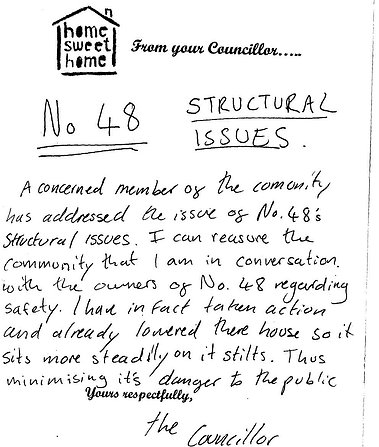 home
sweet
home
From your Councillor.....
No 48
STRUCTURAL
ISSUES.
A concerned member of the comunity
has addressed the issue of No.48's
Structural Issues. I can reasure the
community that I am in conversation
with the owners of No. 48 regarding
safety. I have in fact taken action
and already lowered there house so it
sits more steadily on it stilts. Thus
minimising it's danger to the public
Yours respectfully,
the Councillor